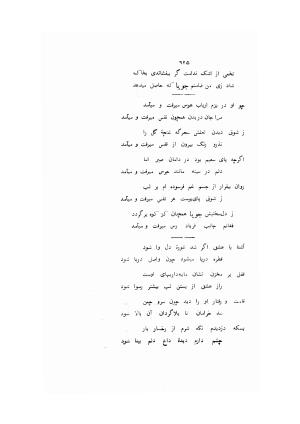 ۶۲۵
تخمی از اشک ندامت گر بیفشانی بخاک
شاد زی من ضامنم جویا که حاصل میدهد
چو او در بزم ارباب هوس میرفت و میآمد
مرا جان در بدن همچون نفس میرفت و میآمد
ز شوق دیدن لعلش سحرگه غنچهٔ گل را
تذرو رنگ بیرون از قفس میرفت و میآمد
اگرچه پای سعیم بود در دامان صبر اما
دلم در سینه مانند جرس میرفت و میآمد
روان بیقرار از جسم غم فرسوده ام بر لب
ز شوق پای‌بوست هر نفس میرفت و میآمد
ز جویا همچنان کز کوه برگردد
فغانم جانب فریاد رس میرفت و میآمد
آشنا با عشق اگر شد شورهٔ دل وا شود
قطره دریا میشود چون واصل دریا شود
قفل بر مخزن نشان مایه‌داریهای اوست
راز عشق از بستن لب بیشتر رسوا شود
قامت و رفتار او را دید چون سرو چمن
شد خرامان تا بلاگردان آن بالا شود
بسکه دزدیدم نگه شرم از رخسار یار
چشم دارم دیدهٔ داغ دلم بینا شود